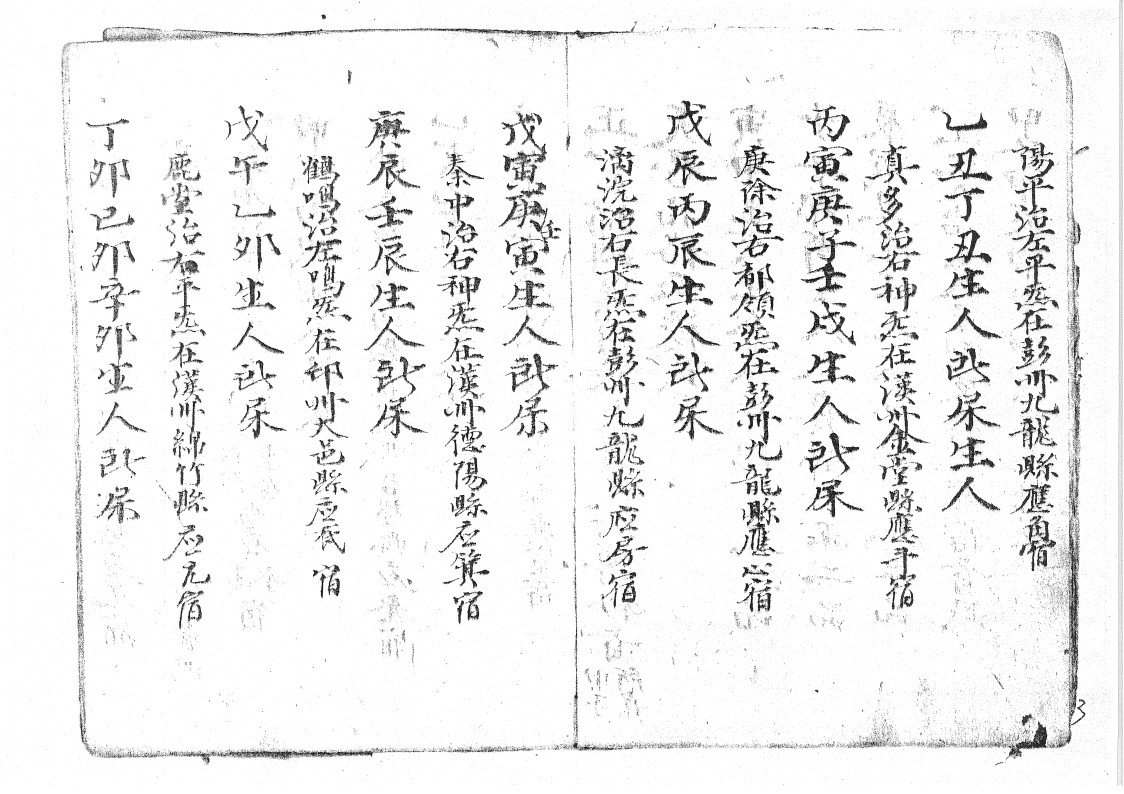 陽平治左平炁在彭州九龍縣應角宿
乙丑丁丑生人所屎生人
真多治右神炁在漢州金堂縣應斗宿
丙寅庚子壬戌生人所屎
庚除治右都領炁在彭州九龍縣應心宿
戊辰丙辰生人所屎
漓沅治右長炁在彭州九龍縣应房宿
戊寅庚寅生人所屎
壬
秦中治右神炁在漢州德陽縣应箕宿
庚辰壬辰生人所屎
鶴鳴治左鳴炁在邛州大邑縣应氐宿
戊午乙卯生人所屎
鹿堂治右平炁在漢州綿竹縣应亢宿
丁卯己卯辛卯生人所屎
3